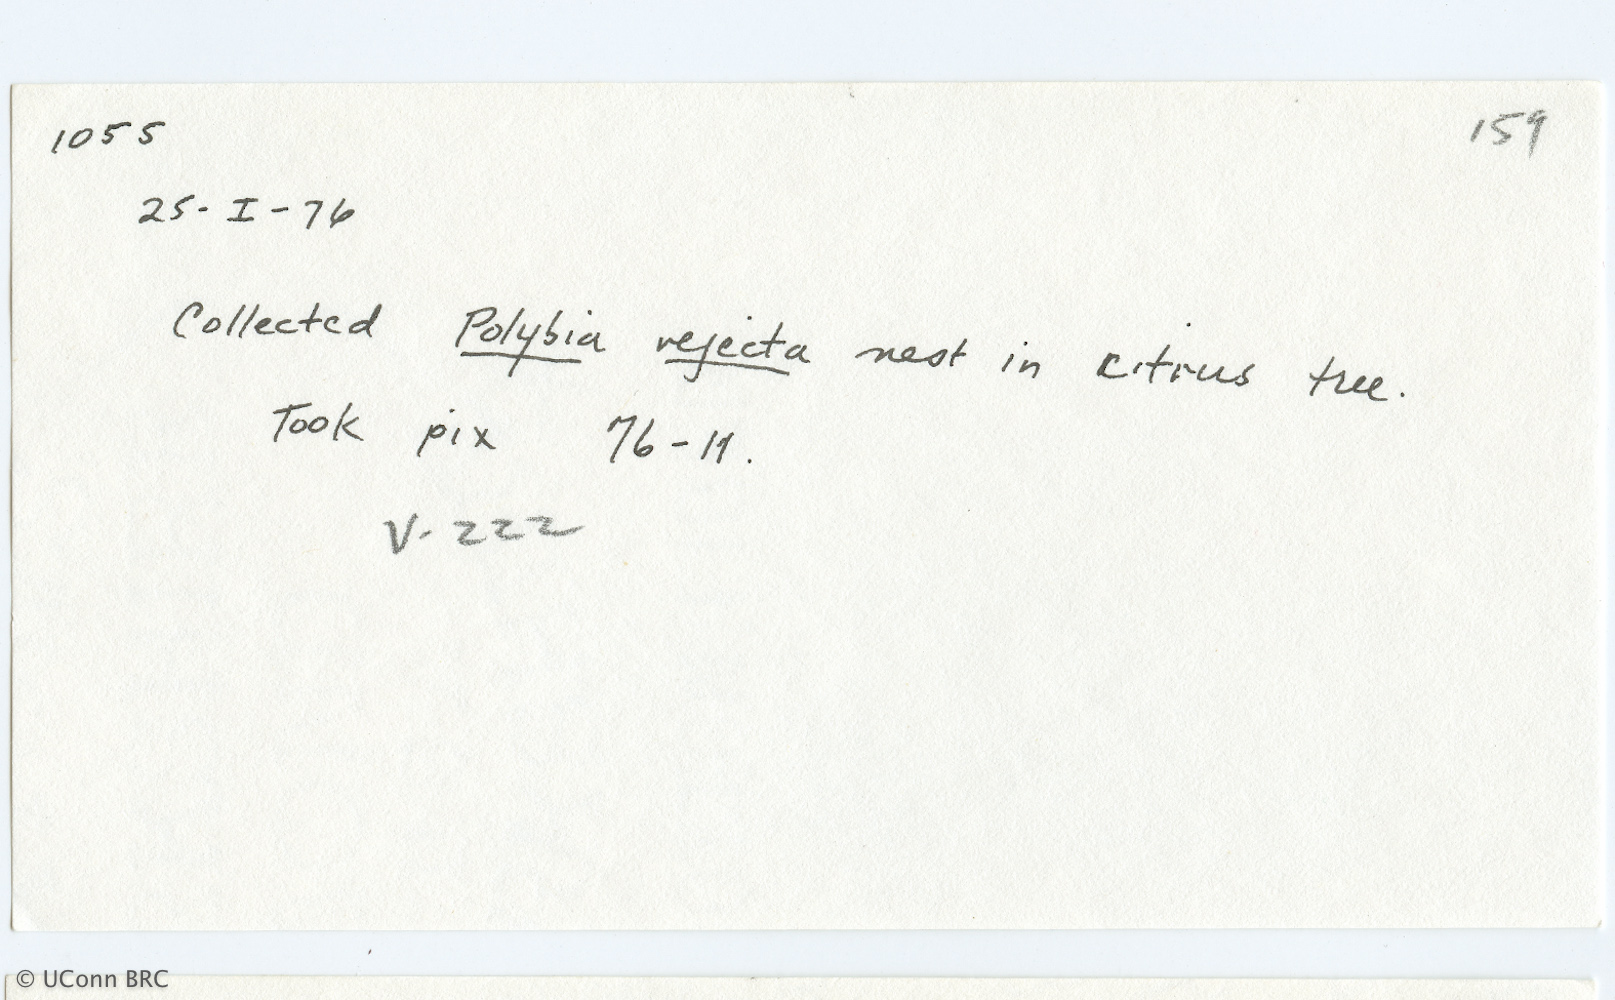 1055 159
25-I-76
Collected Polybia rejecta nest in citrus tree.
Took pix 76-11.
V-222
© UConn BRC